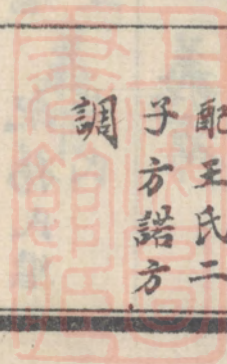 配王氏二
子方諾方
調